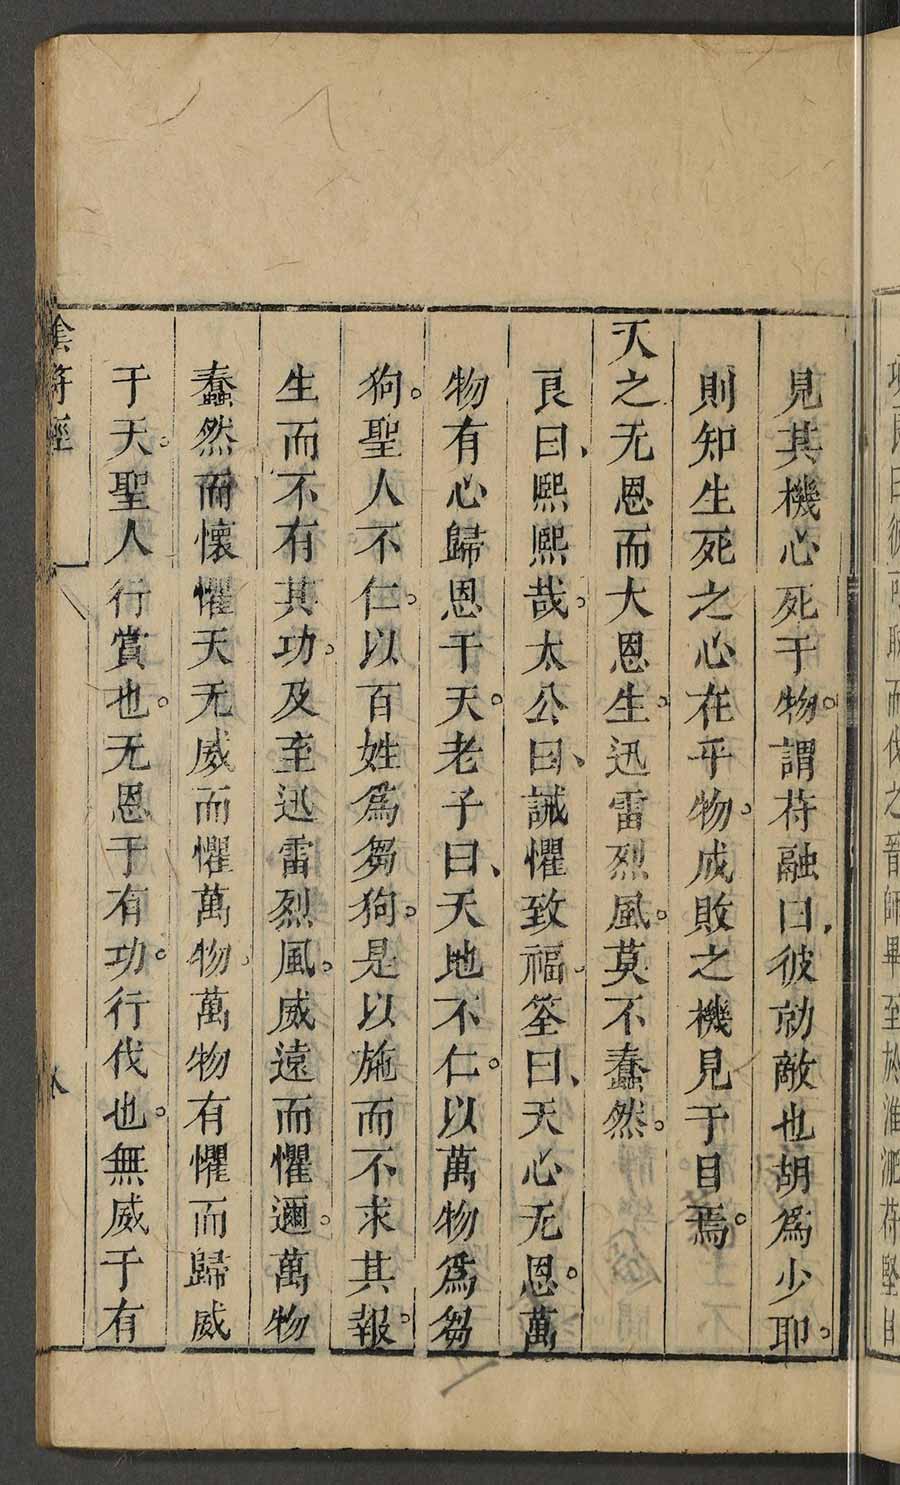 見其機心死于物。謂苻融曰、彼勍敵也胡爲少耶。
則知生死之心在乎物。成敗之機見于目焉。
天之无恩而大恩生。迅雷烈風。莫不蠢然。
良曰、熙熙哉。太公曰、誡懼致福。筌曰、天心无恩。萬
物有心歸恩于天。老子曰、天地不仁。以萬物爲芻
狗。聖人不仁。以百姓爲芻狗。是以施而不求其報。
生而不有其功。及至迅雷烈風。威遠而懼邇。萬物
蠢然而懷懼天无威而懼萬物。萬物有懼而歸威
于天。聖人行賞也。无恩于有功。行伐也。無威于有
陰符經
八
至於淮淝苻堅